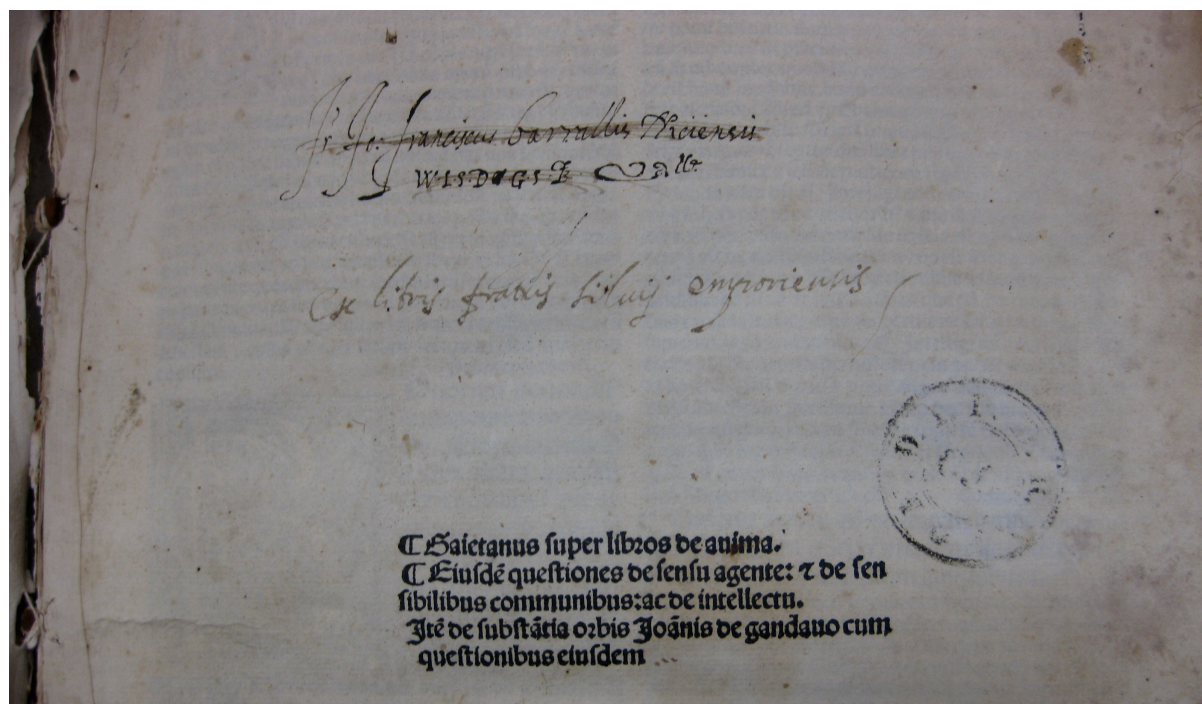 Fr. Jo: franciscus barrallis Niciensis
Ex libris fratris siluij emporiensis
¶ Gaietanus super libros de anima.
¶ Eiusdē questiones de sensu agente: ⁊ de sen
sibilibus communibus: ac de intellectu.
Itē de substātia orbis Joānis de gandauo cum
questionibus eiusdem